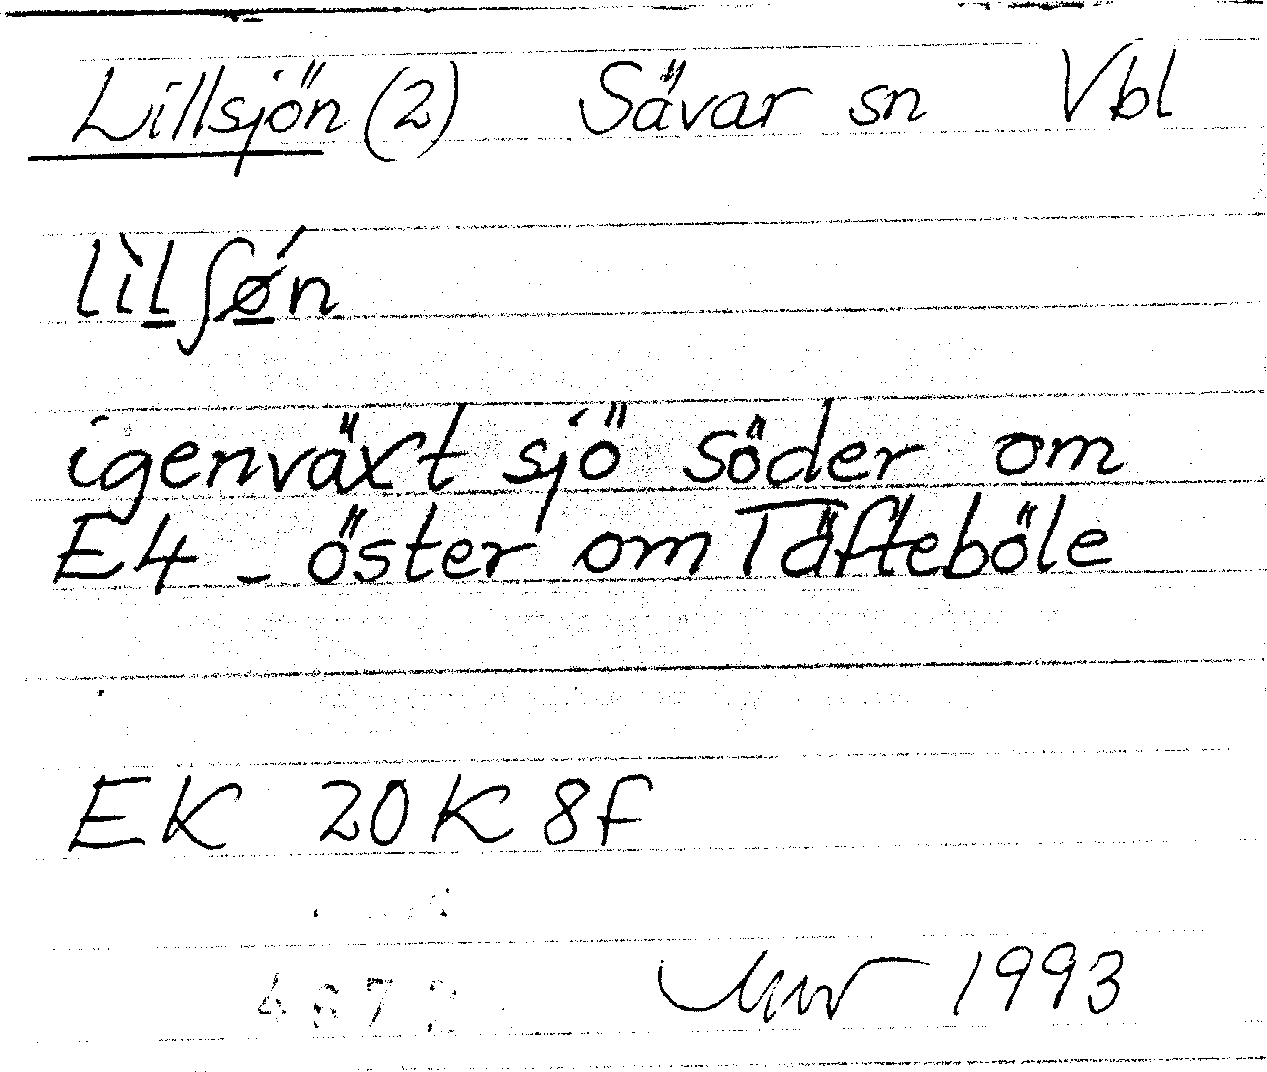 Lillsjön (2) Sävar sn Vbl
lìl̲ʃǿ̲n
igenväxt sjö söder om
E4 - öster om Täfteböle
EK 20K 8f
1993